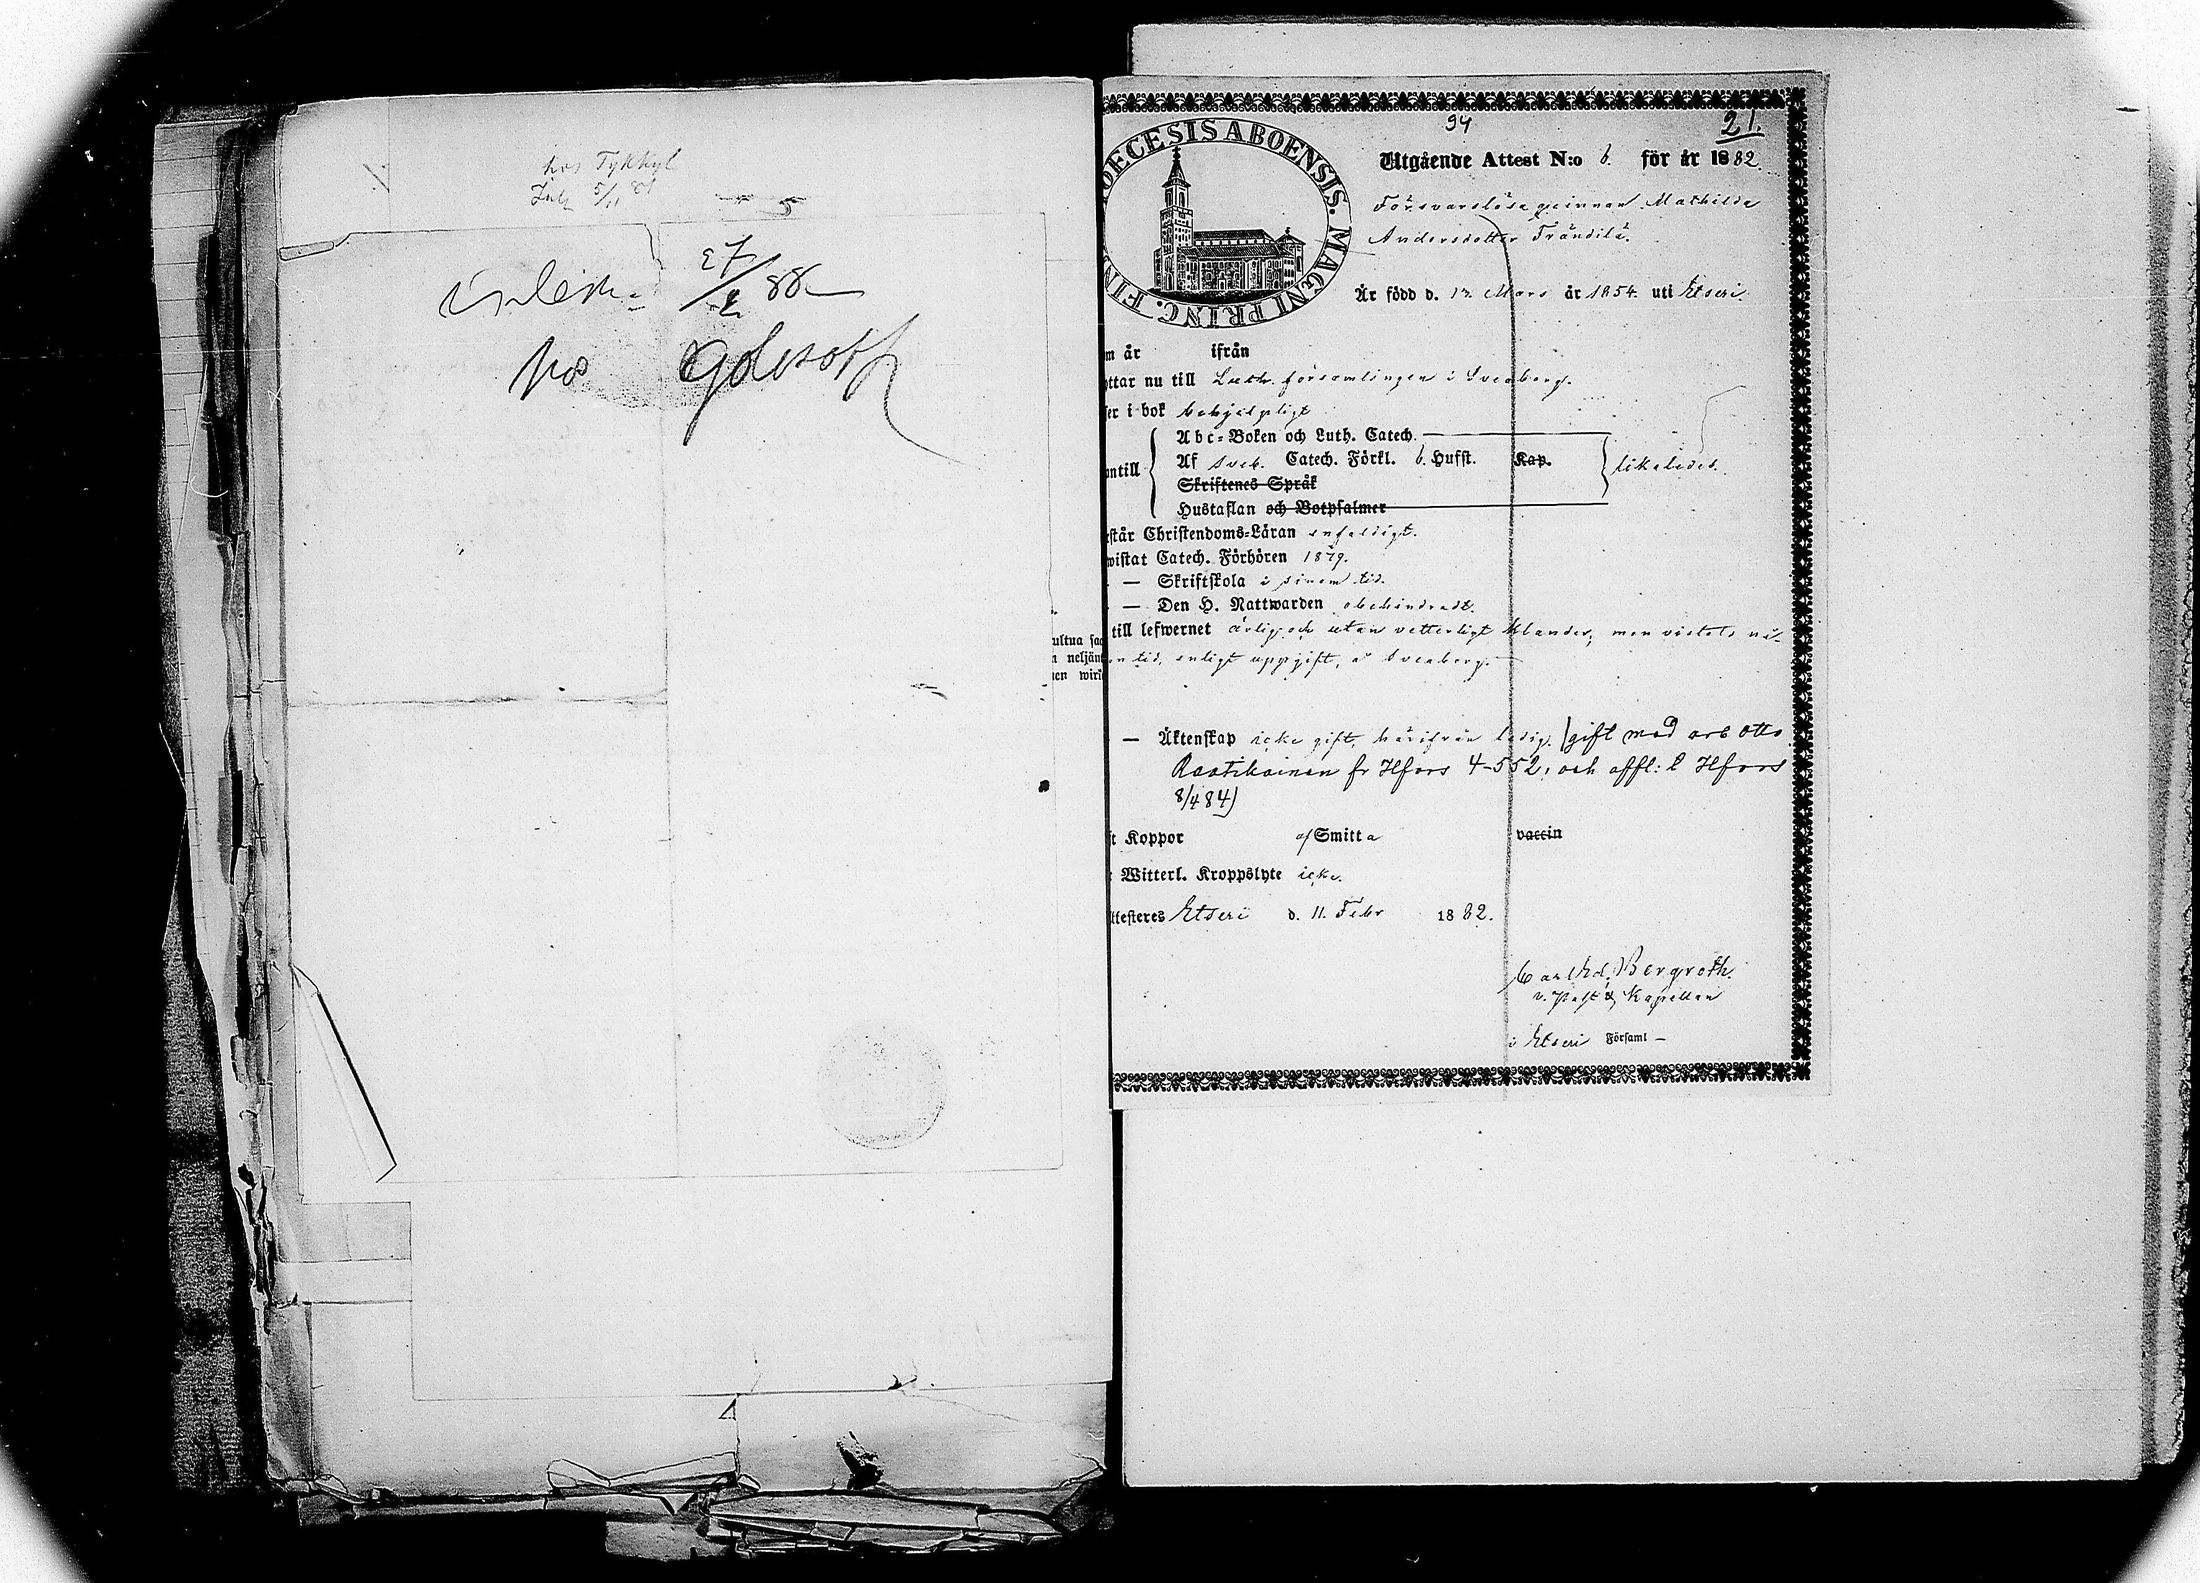 hos Tykkyl
5/11 81
27/2 88
hos Golesoff
ultua saa
n neljän
nen wiri
94
21.
DIOECESIS ABOENSIS. MAGNI PRINC. FIN
Utgående Attest N:o 6. för år 1882.
Försvarslösa qvinnan Mathilda
Andersdotter Trändilä.
Är född d. 17 Mars år 1854 uti Etseri.
m år ifrån
ttar nu till Luth. församlingen i Sveaborg.
er i bok behjelpligt
Abc-Boken och Luth. Catech.
antill Af Sveb. Catech. Förkl. 6. Hufst. Kap. likaledes.
Skriftenes Språk
Hustaflan och Botpsalmer
rstår Christendoms-Läran enfaldigt.
wistat Catech. Förhören 1879.
— Skriftskola i sinom tid.
— Den H. Nattwarden obehindradt.
till lefwernet ärlig och utan vetterligt klander, men vistats nå-
on tid, enligt uppgift, å Sveaborg.
— Äktenskap icke gift, härifrån ledig. (gift med arb Otto
Raatikainen fr Hfors 4-552, och affl: t Hfors
8/4 84)
t Koppor af Smitta vaccin
Witterl. Kroppslyte icke.
ttesteres Etseri d. 11. Febr 1882.
Carl Ed. Bergroth.
v. Past & Kapellan
i Etseri Församl —